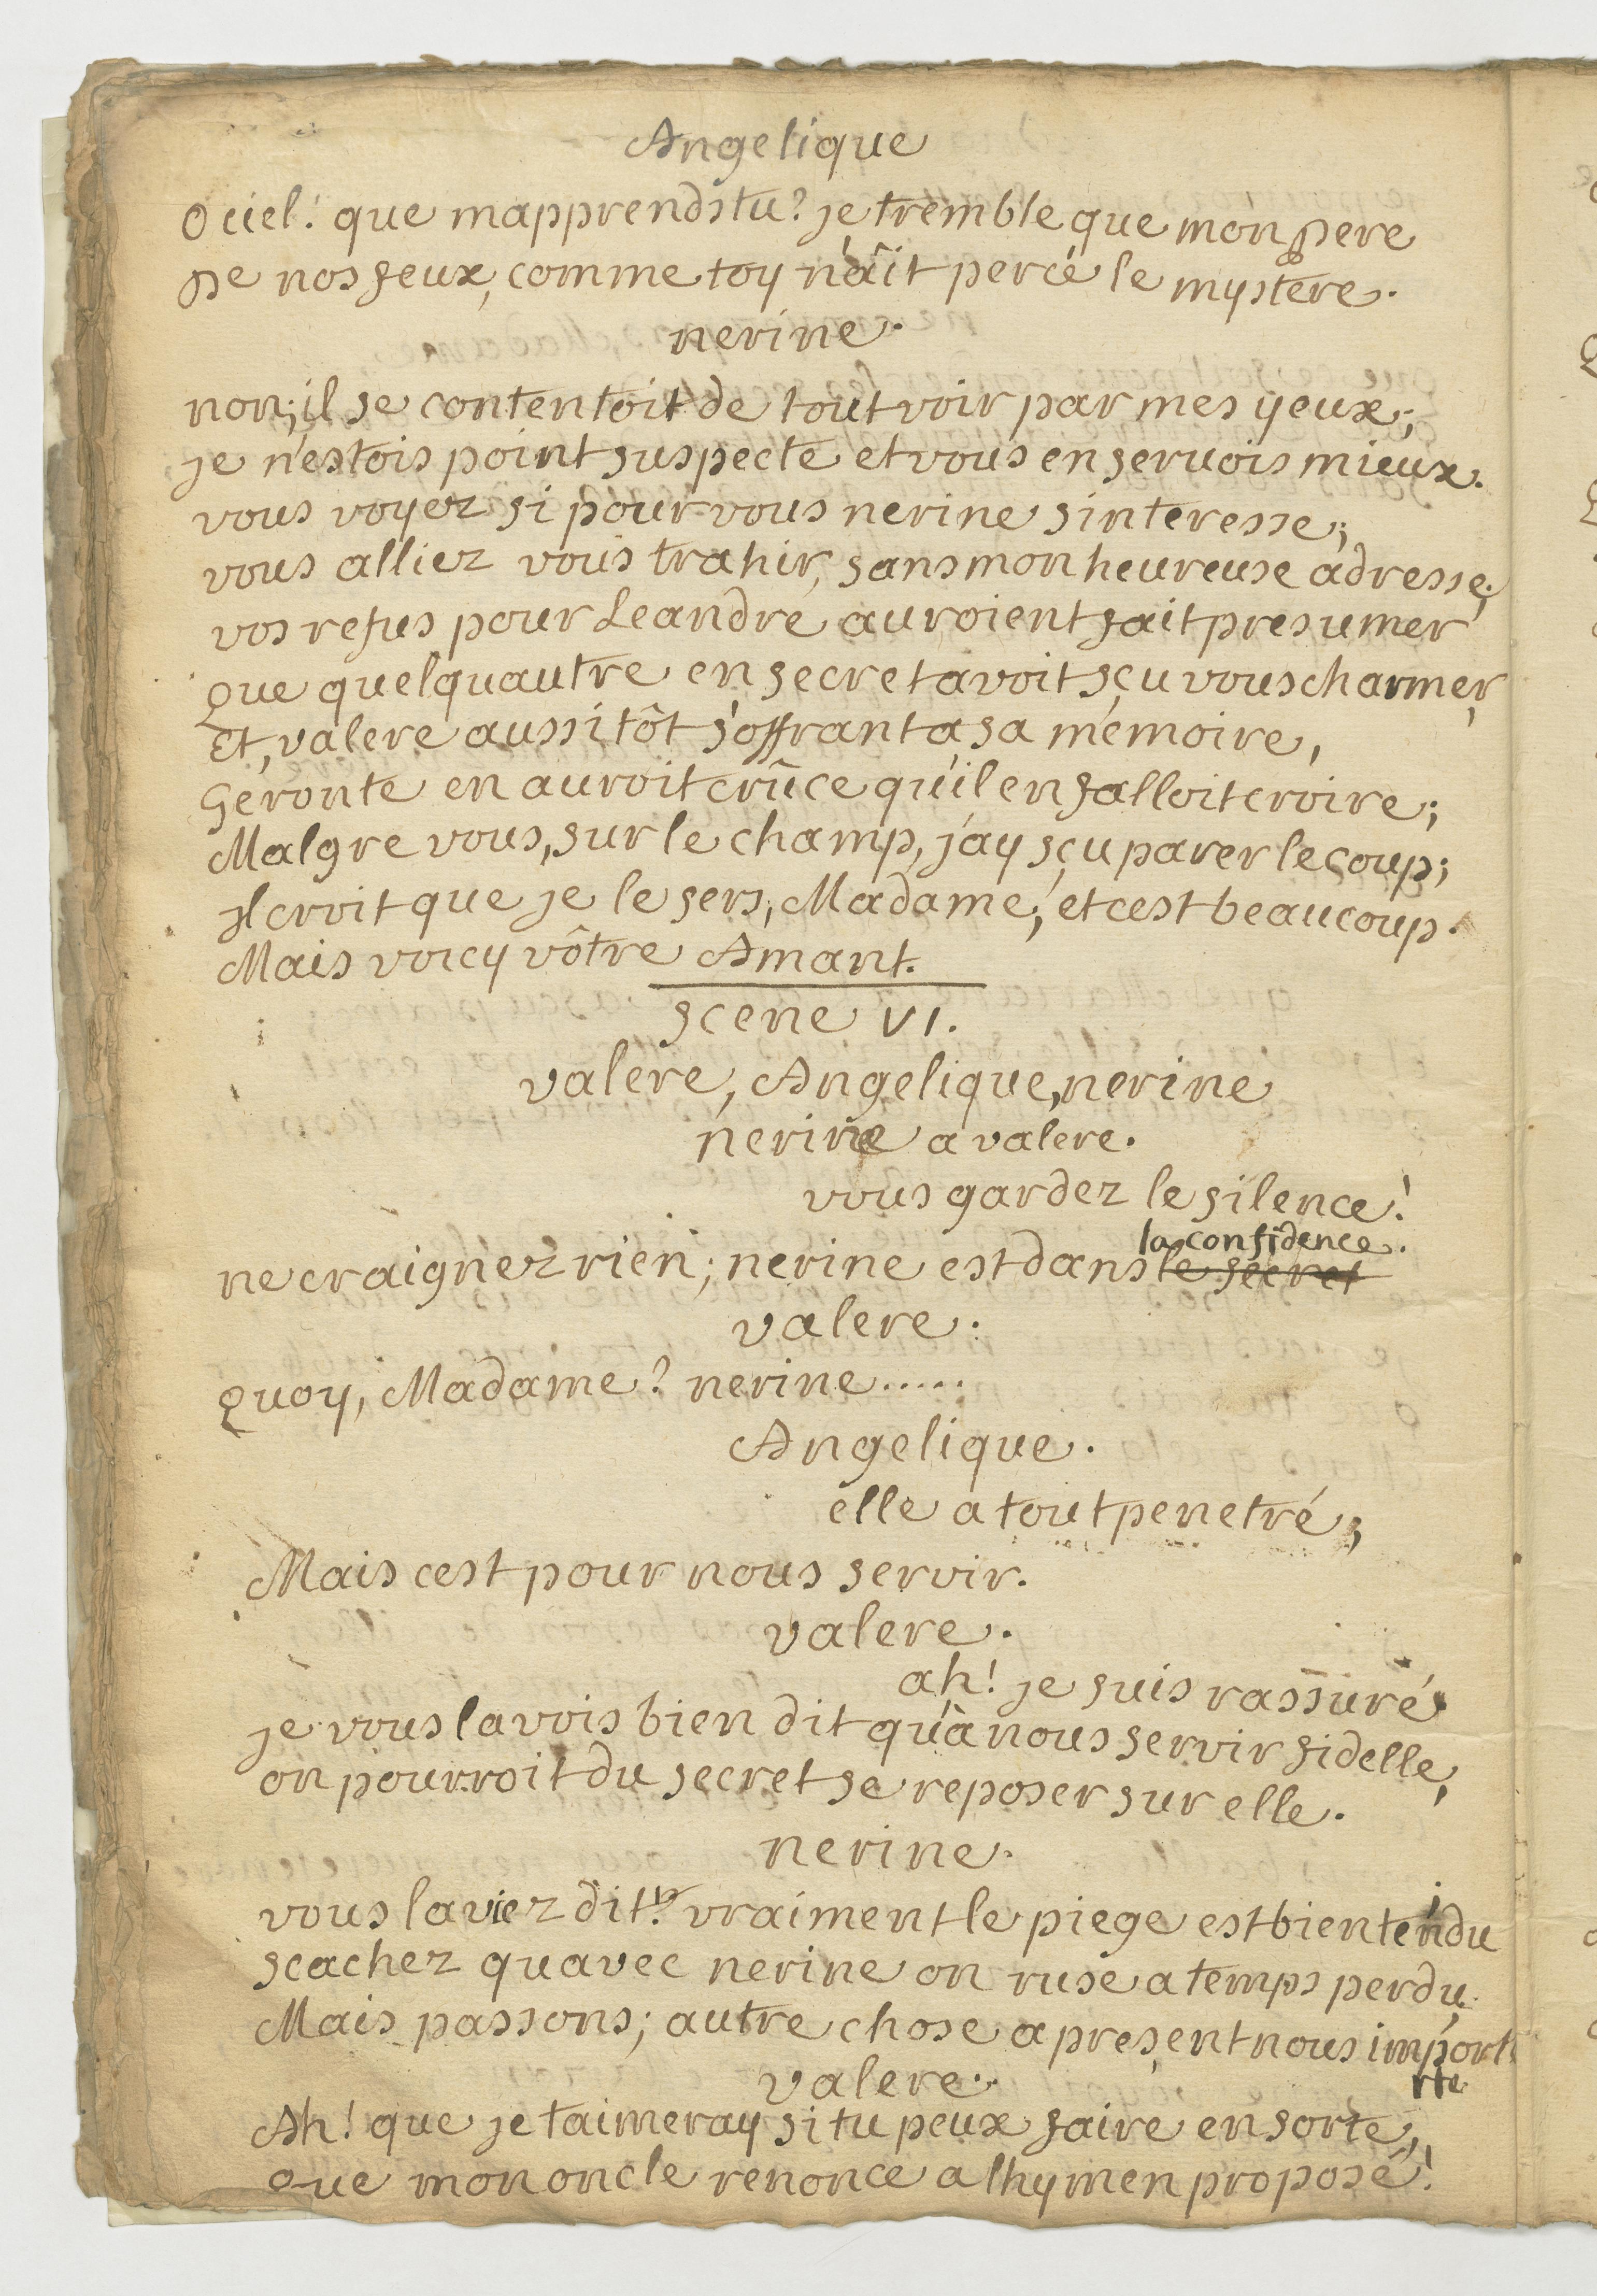 Angelique
O ciel! que mapprends tu? je tremble que mon pere
De nos feux, comme toy n'âit percé le mystère.
nerine.
non; il se contentoit de tout voir par mes yeux;
je n'estois point suspecte et vous en servois mieux.
vous voyez si pour vous nerine s'interesse;
vous alliez vous trahir, sans mon heureuse adresse;
vos refus pour Leandre auroient fait presumer
Que quelqu'autre en secret avoit sçu vous charmer
Et, valere aussitôt s'offrant a sa mémoire,
Geronte en auroit crû ce qu'il en falloit croire;
Malgre vous, sur le champ, j'ay sçu parer le coup;
Il croit que je le sers, Madame; et cest beaucoup.
Mais voicy vôtre Amant.
scene VI.
valere, Angelique, nerine
nerine a valere.
vous gardez le silence!
la confidence.
ne craignez rien; nerine est dans le secret
valere.
Quoy, Madame? nerine.....
Angelique.
elle a tout penetré;
Mais cest pour nous servir.
valere.
ah! je suis rassuré
je vous lavois bien dit qu'à nous servir fidelle,
on pourroit du secret se reposer sur elle.
nerine.
vous laviez dit? vraiment le piege est bien tendu
scachez quavec nerine on ruse a temps perdu.
Mais passons; autre chose a present nous import
rte
valere.
Ah! que je taimeray si tu peux faire en sorte,
Que mon oncle renonce a lhymen proposé!